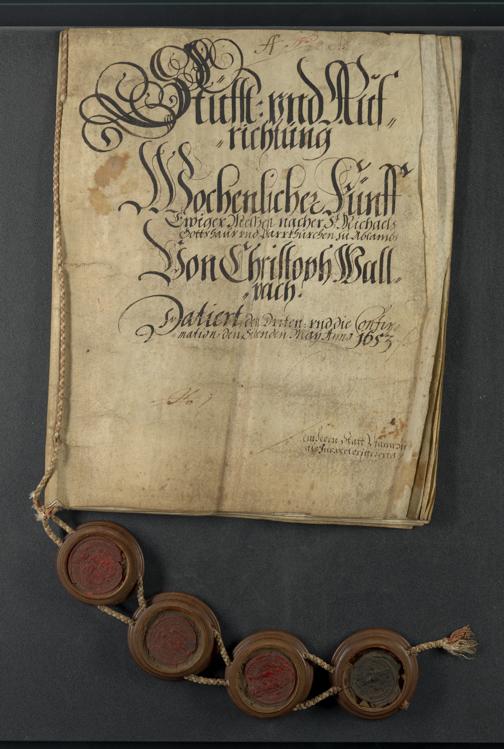 Stifft: und Auf„
„richtung
Wochenlicher Fünff
Ewiger Messen nacher St. Michaels
Gottshauß und Pfarrkürchen zu
Von Christoph Wall„
„pach.
Datiert, den Dritten: und die Confir„
mation: den Sibenden May Anno 1653